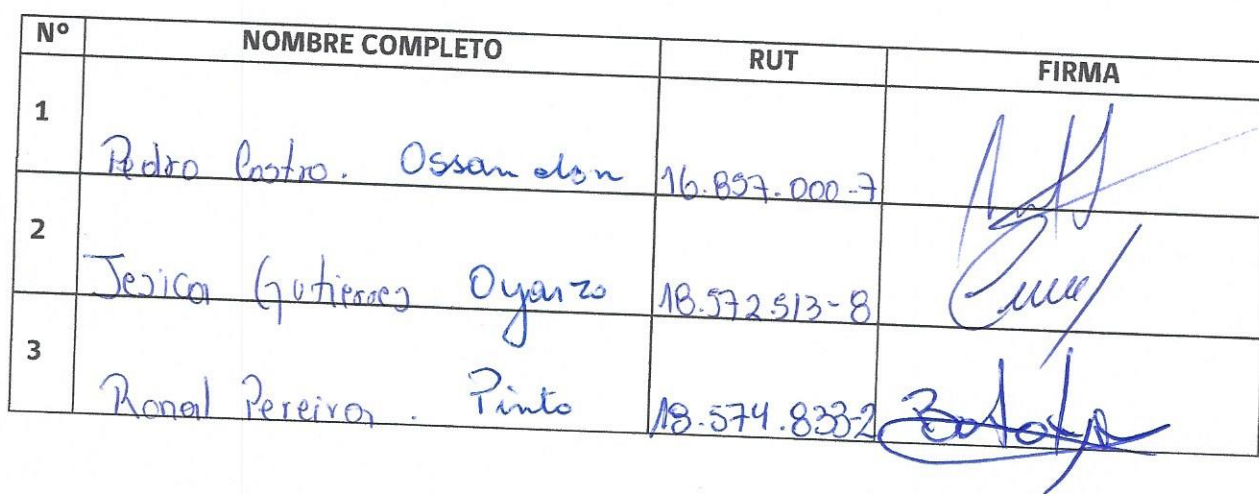 Nº NOMBRE COMPLETO RUT FIRMA
1 Pedro Castro. Ossandon 16.897.000-7
2 Jesica Gutierrez Oyarzo 18.572.513-8
3 Ronal Pereira. Pinto 18.574.833-2